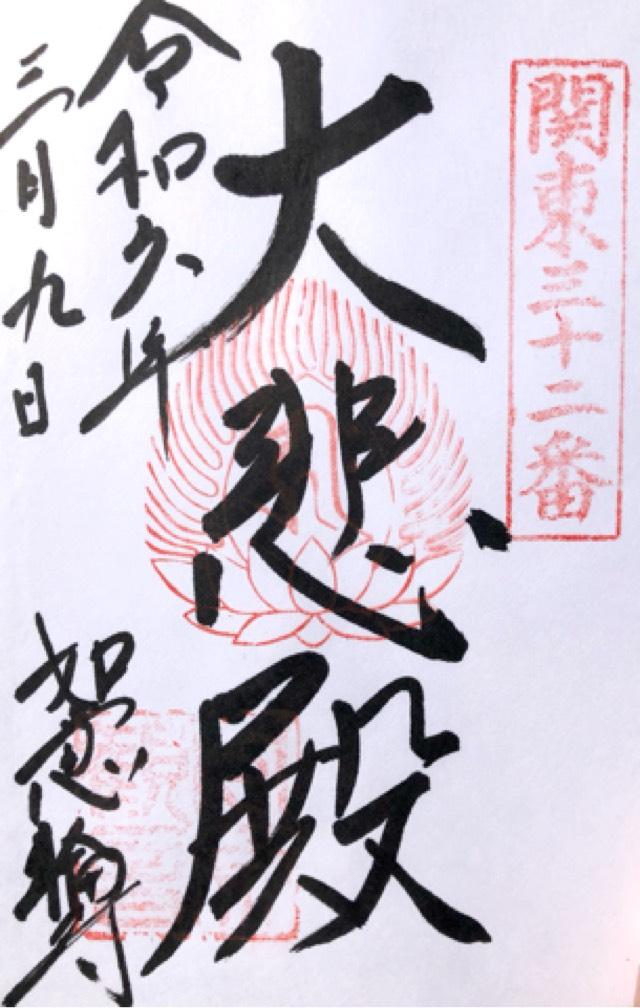 関東三十二番
大悲殿
令和六年
三月九日
如意輪寺